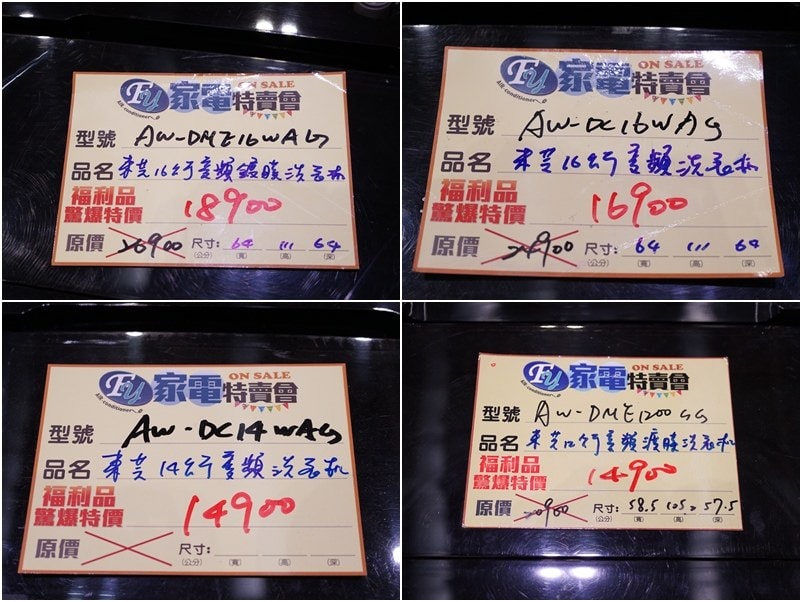 Fu 家電特賣會 ON SALE
Air-conditioner
型號 AW-DME16WAG
品名 東芝16公斤變頻鍍膜洗衣机
福利品
驚爆特價 18900
原價 26900 尺寸: 64 111 64
(公分) (寬) (高) (深)
Fu 家電特賣會 ON SALE
Air-conditioner
型號 AW-DC16WAG
品名 東芝16公斤變頻洗衣机
福利品
驚爆特價 16900
原價 24900 尺寸: 64 111 64
(公分) (寬) (高) (深)
Fu 家電特賣會 ON SALE
Air-conditioner
型號 AW-DC14WAG
品名 東芝14公斤變頻洗衣机
福利品
驚爆特價 14900
原價 尺寸:
(公分) (寬) (高) (深)
Fu 家電特賣會 ON SALE
Air-conditioner
型號 AW-DME1200GG
品名 東芝12公斤變頻渡膜洗衣机
福利品
驚爆特價 14900
原價 20900 尺寸: 58.5 105.2 57.5
(公分) (寬) (高) (深)